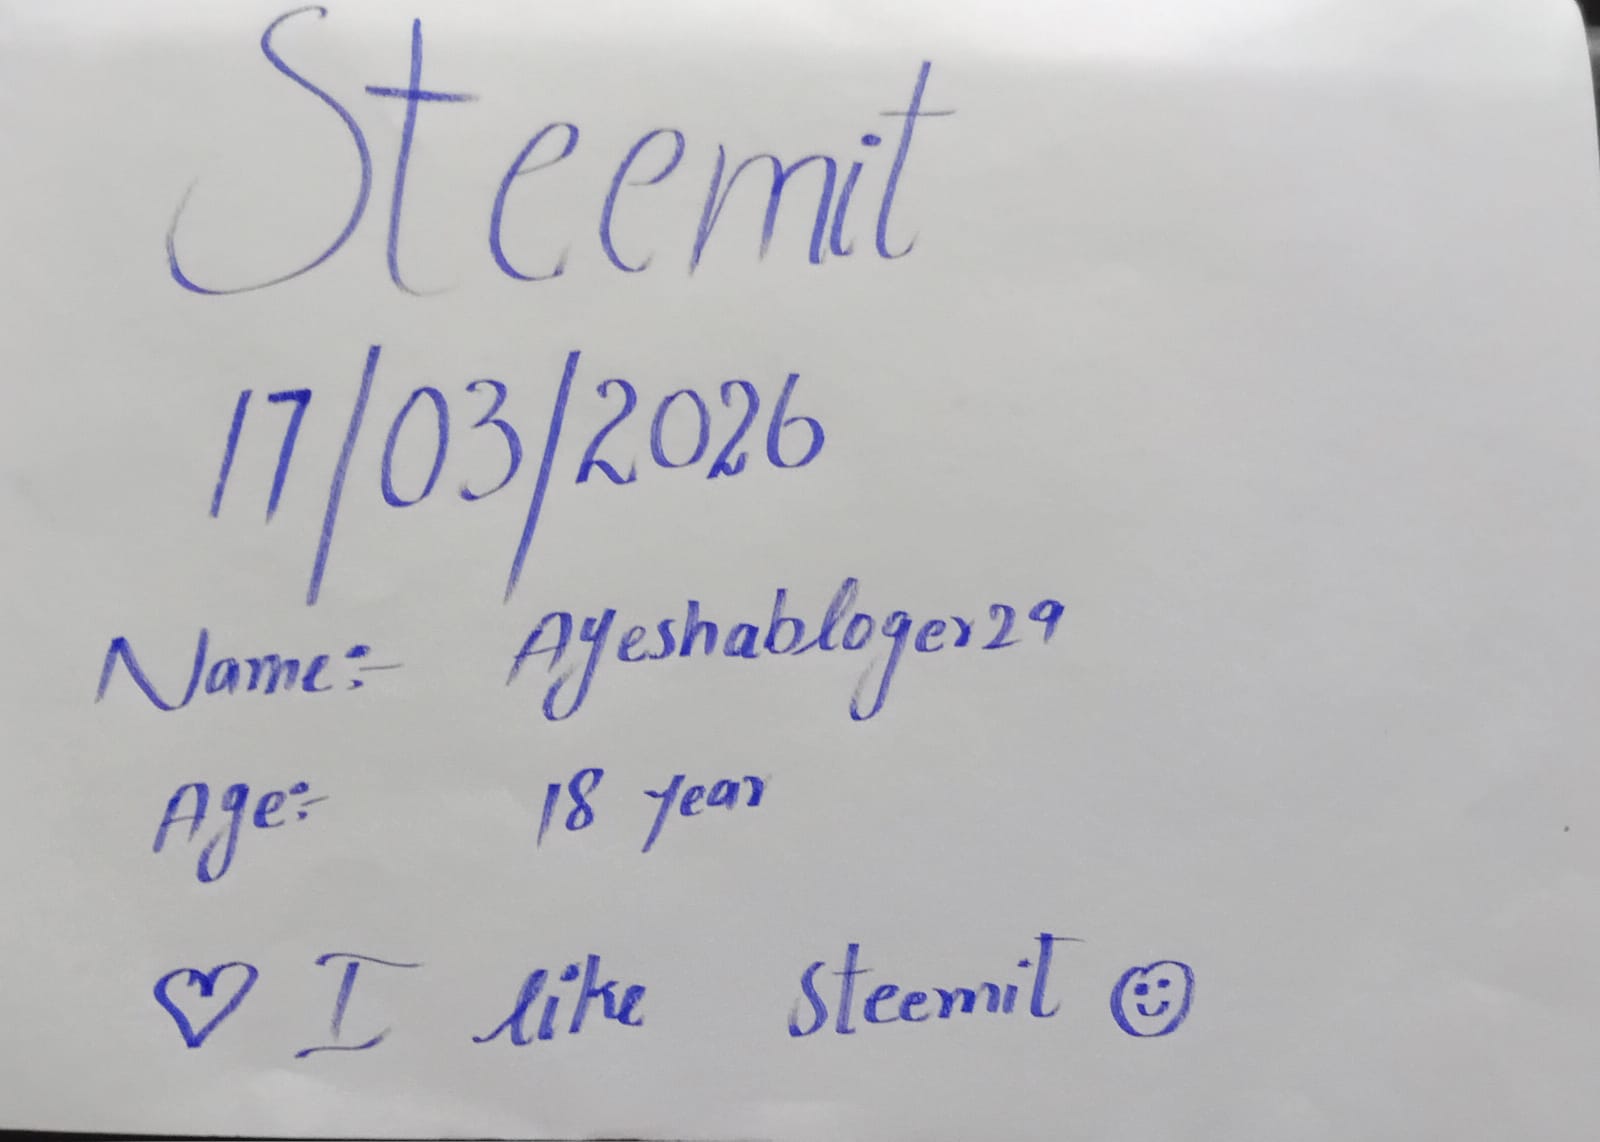 Steemit
17/03/2026
Name:- Ayeshabloger29
Age:- 18 year
♡ I like steemit ☺